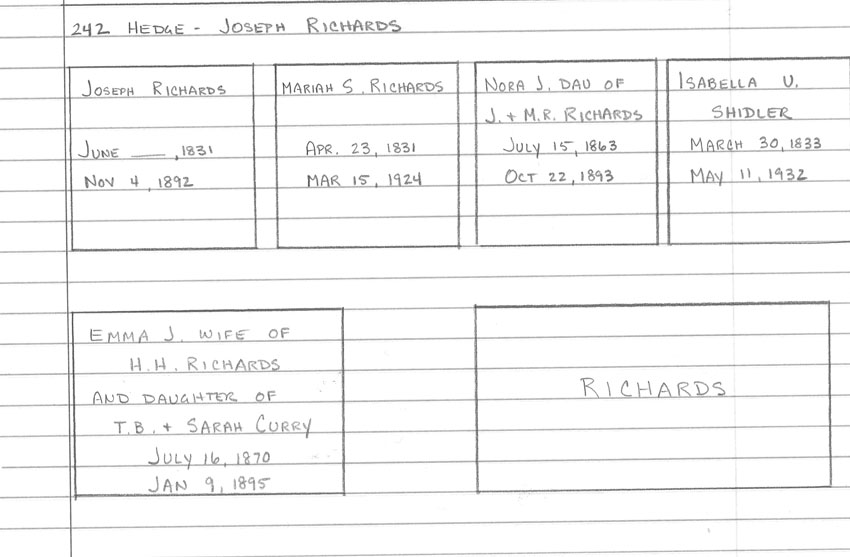 242 HEDGE - JOSEPH RICHARDS
JOSEPH RICHARDS
JUNE ___, 1831
NOV 4, 1892
MARIAH S. RICHARDS
APR. 23, 1831
MAR 15, 1924
NORA J. DAU OF
J. + M.R. RICHARDS
JULY 15, 1863
OCT 22, 1893
ISABELLA V.
SHIDLER
MARCH 30, 1833
MAY 11, 1932
EMMA J. WIFE OF
H.H. RICHARDS
AND DAUGHTER OF
T.B. + SARAH CURRY
JULY 16, 1870
JAN 9, 1895
RICHARDS